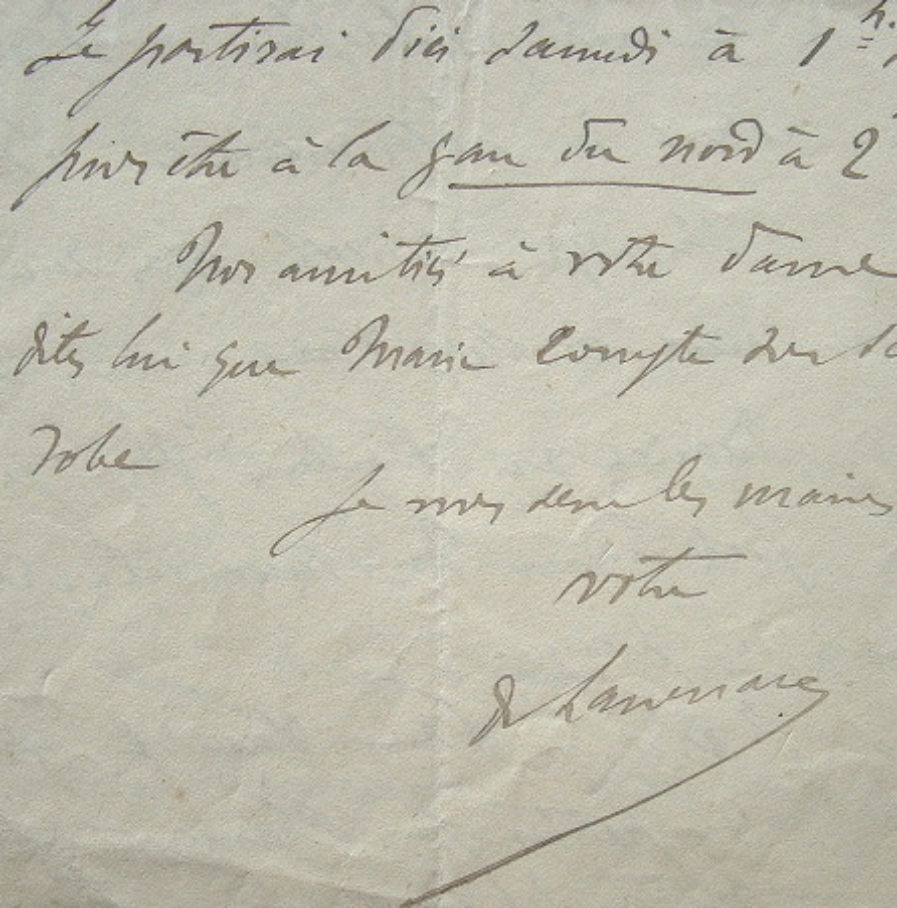 Je partirai d'ici samedi à 1 h.
pour être à la gare du nord à 2
Nos amitiés à votre dame
dites lui que Marie compte sur sa
robe
Je vous serre les mains
votre
de Lanessan